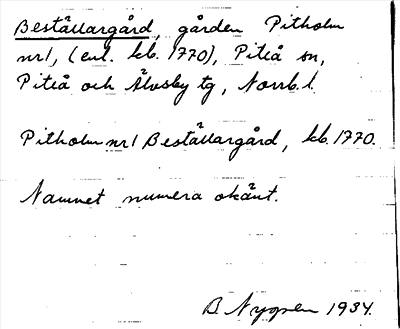 Beställargård, gården Pitholm
nr1, (enl. kb. 1770), Piteå sn,
Piteå och Älvsby tg, Norrb. l.
Pitholm nr1 Beställargård, kb. 1770.
Namnet numera okänt.
B. Nygren 1934.